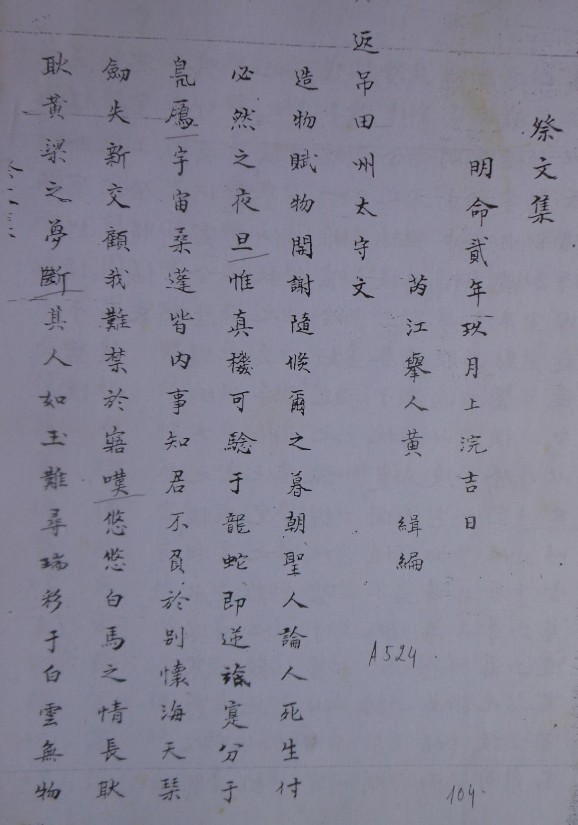 祭文集
明命貳年玖月上浣吉日
芮江舉人黃緝編
返吊田州太守文
造物賦物開謝隨候爾之暮朝聖人論人死生付
必然之夜旦惟真機可驗于龍蛇即逆旅寔分于
鳧鴈宇宙桑蓬皆内事知君不負於別懷海天琹
劍失新交顧我難禁於寤嘆悠悠白馬之情長耿
耿黃粱之夢斷其人如玉難尋瑞彩于白雲無物
A524.
104.